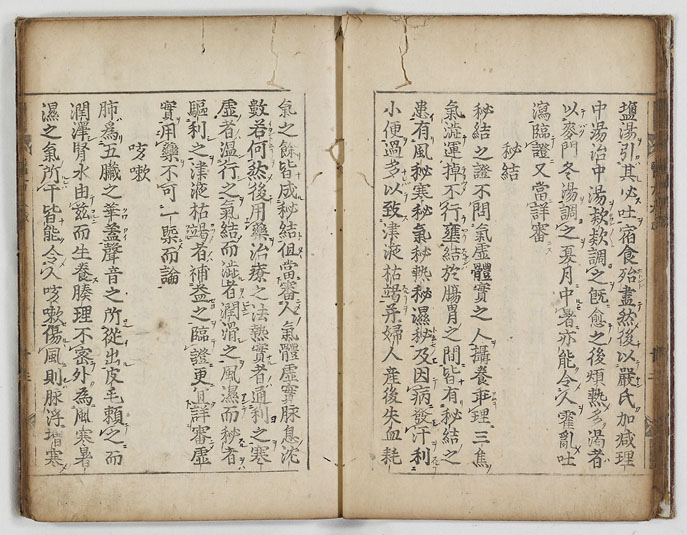 鹽湯引其必吐宿食殆盡然後以嚴氏加減理
中湯治中湯欵欵調之旣愈之後煩熱多渴者
以麥門冬湯調之夏月中暑亦能令人霍亂吐
瀉臨證又當詳審
秘結
秘結之證不問氣虛體實之人攝養乖理三焦
氣澁運掉不行壅結於腸胃之間皆有秘結之
患有風秘寒秘氣秘熱秘濕秘及因病發汗利
小便過多以致津液枯竭并婦人產後失血耗
氣之餘皆成秘結但當審人氣體虛實脉息沈
數若何然後用藥治療之法熱實者通利之寒
虛者溫行之氣結而澁者潤滑之風濕而秘者
驅利之津液枯竭者補益之臨證更宜詳審虛
實用藥不可一槩而論
咳嗽
肺爲五臟之華蓋聲音之所從出皮毛賴之而
潤澤腎水由茲而生養腠理不密外爲風寒暑
濕之氣所干皆能令人咳嗽傷風則脉浮增寒